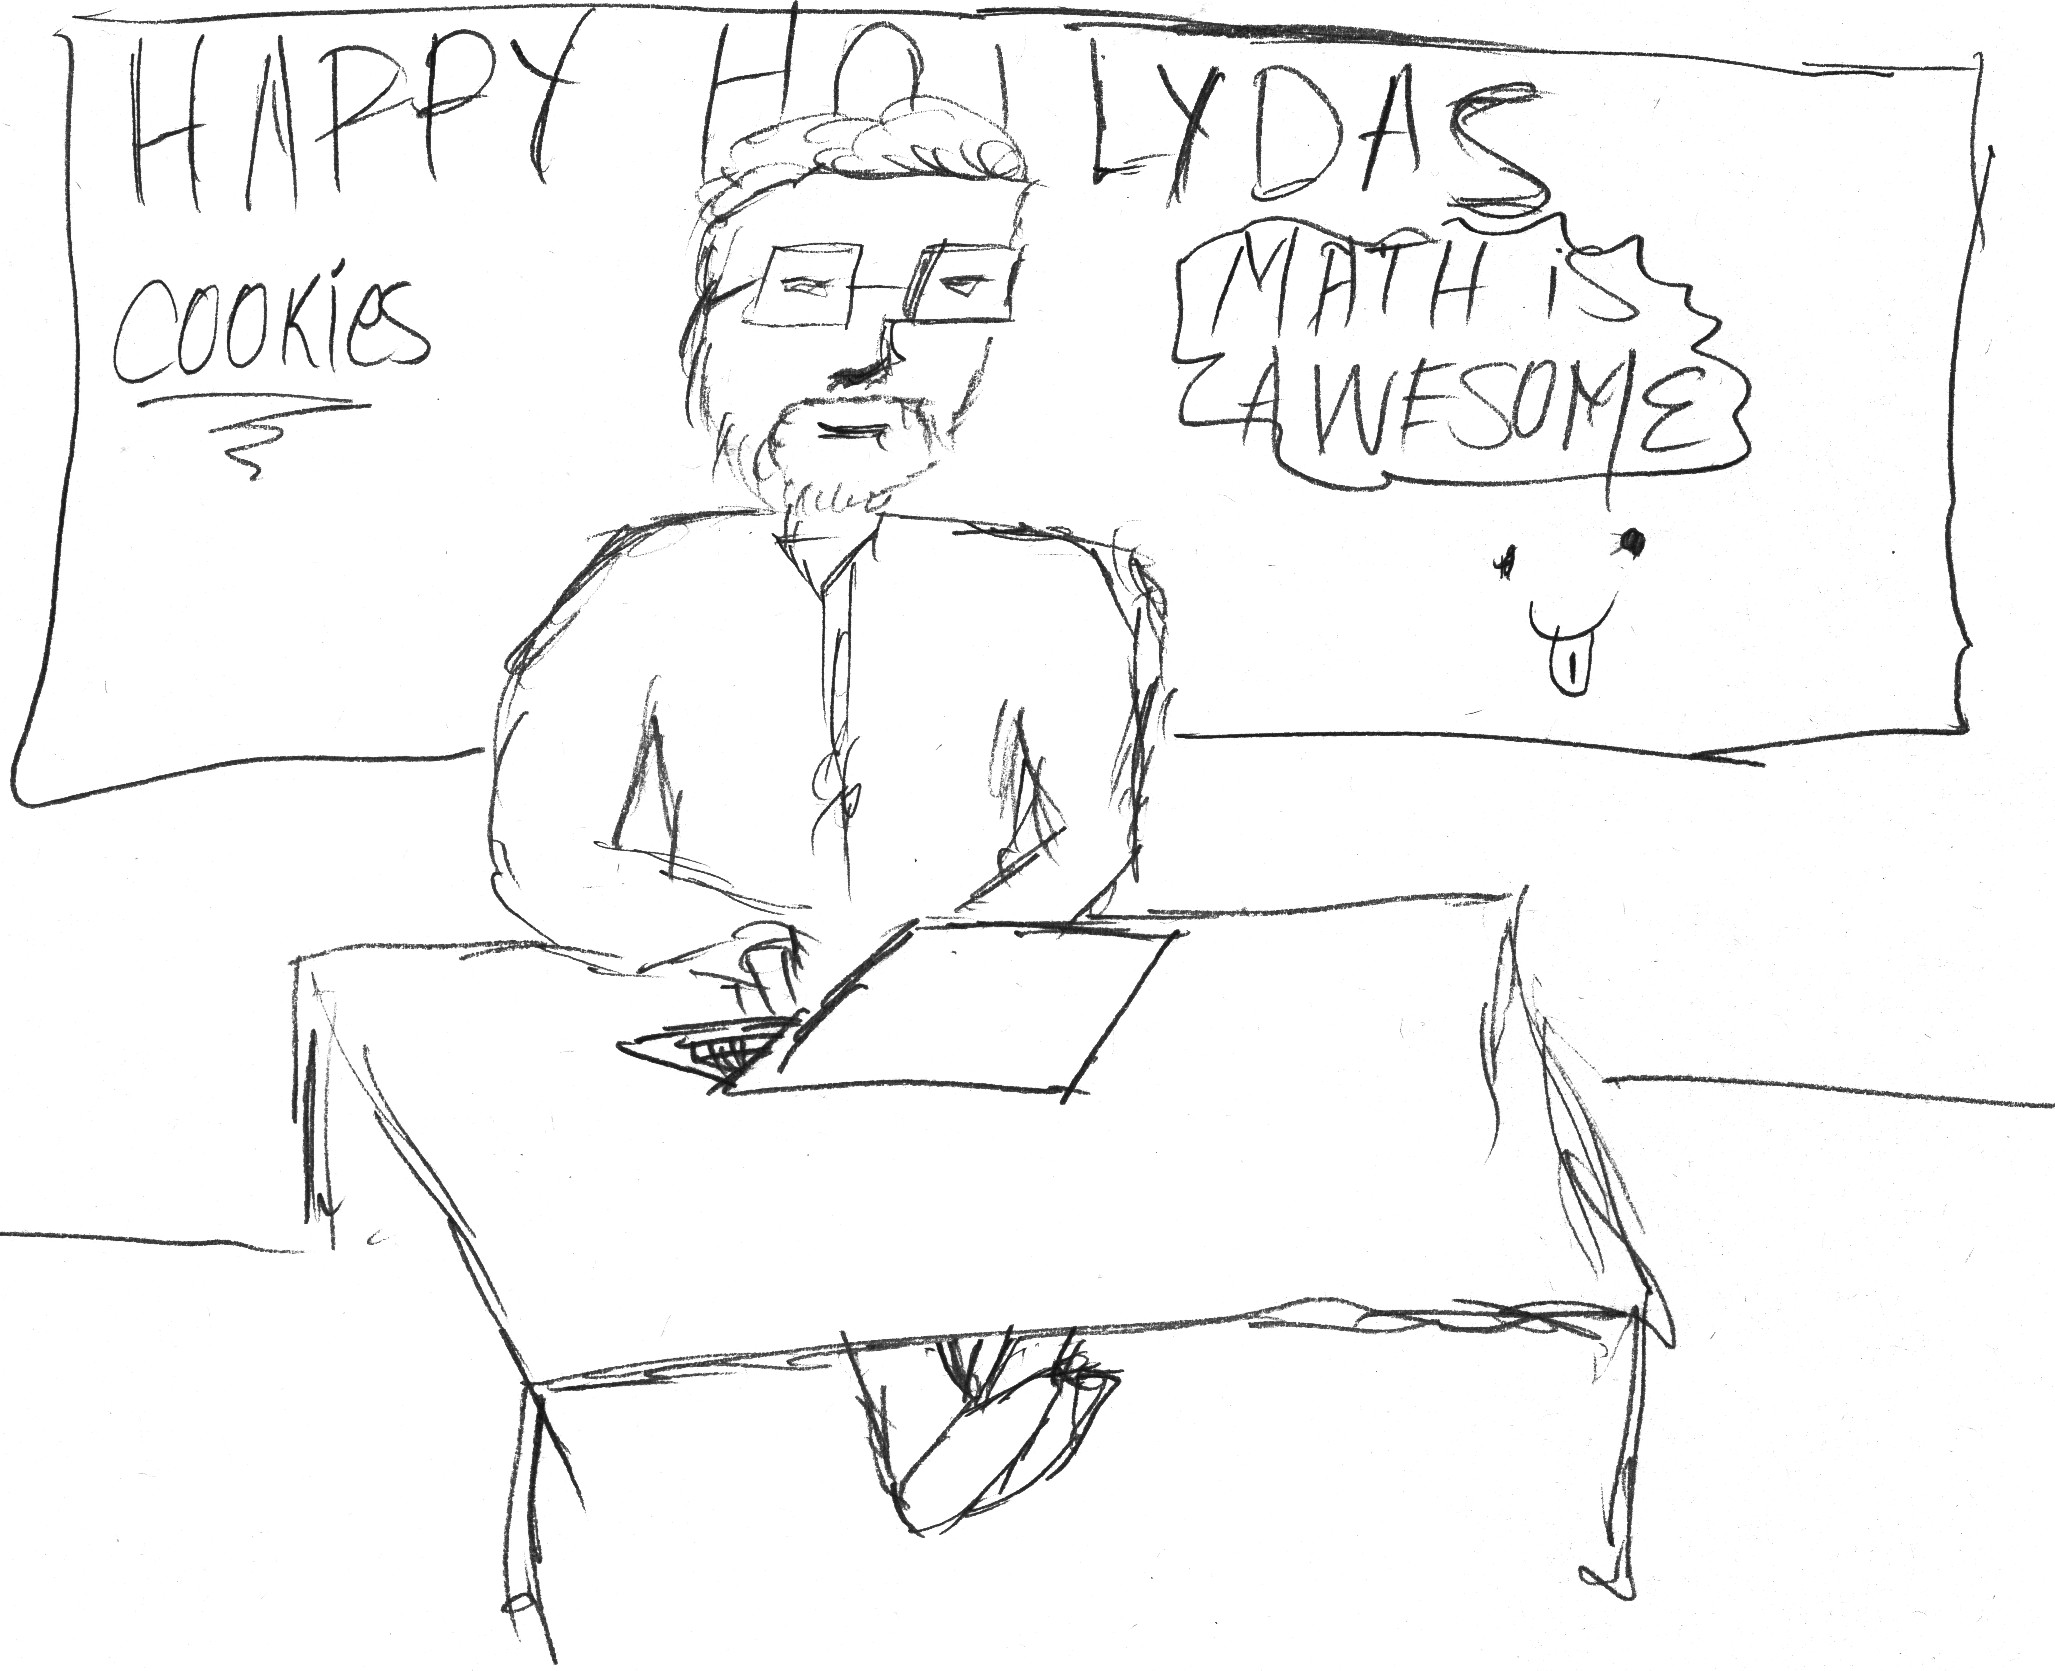 HAPPY HOLLYDAS
COOKiES
MATH iS
AWESOME